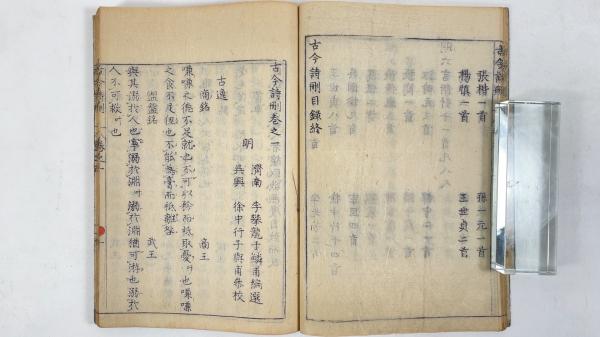 張楷一首 孫一元一首
楊慎一首 王世貞二首
古今詩刪目録終
古今詩刪卷之一
明 濟南 李攀龍于鱗甫編選
吳興 徐中行子與甫叅校
古逸
商銘 商王
嗛嗛之德不足就也不可以矜而祗取憂也嗛嗛
之食不足狃也不能為膏而祗離咎
盥盤銘 武王
與其溺於人也寧溺於淵溺於淵猶可游也溺於
人不可救也
古今詩刪 卷之一